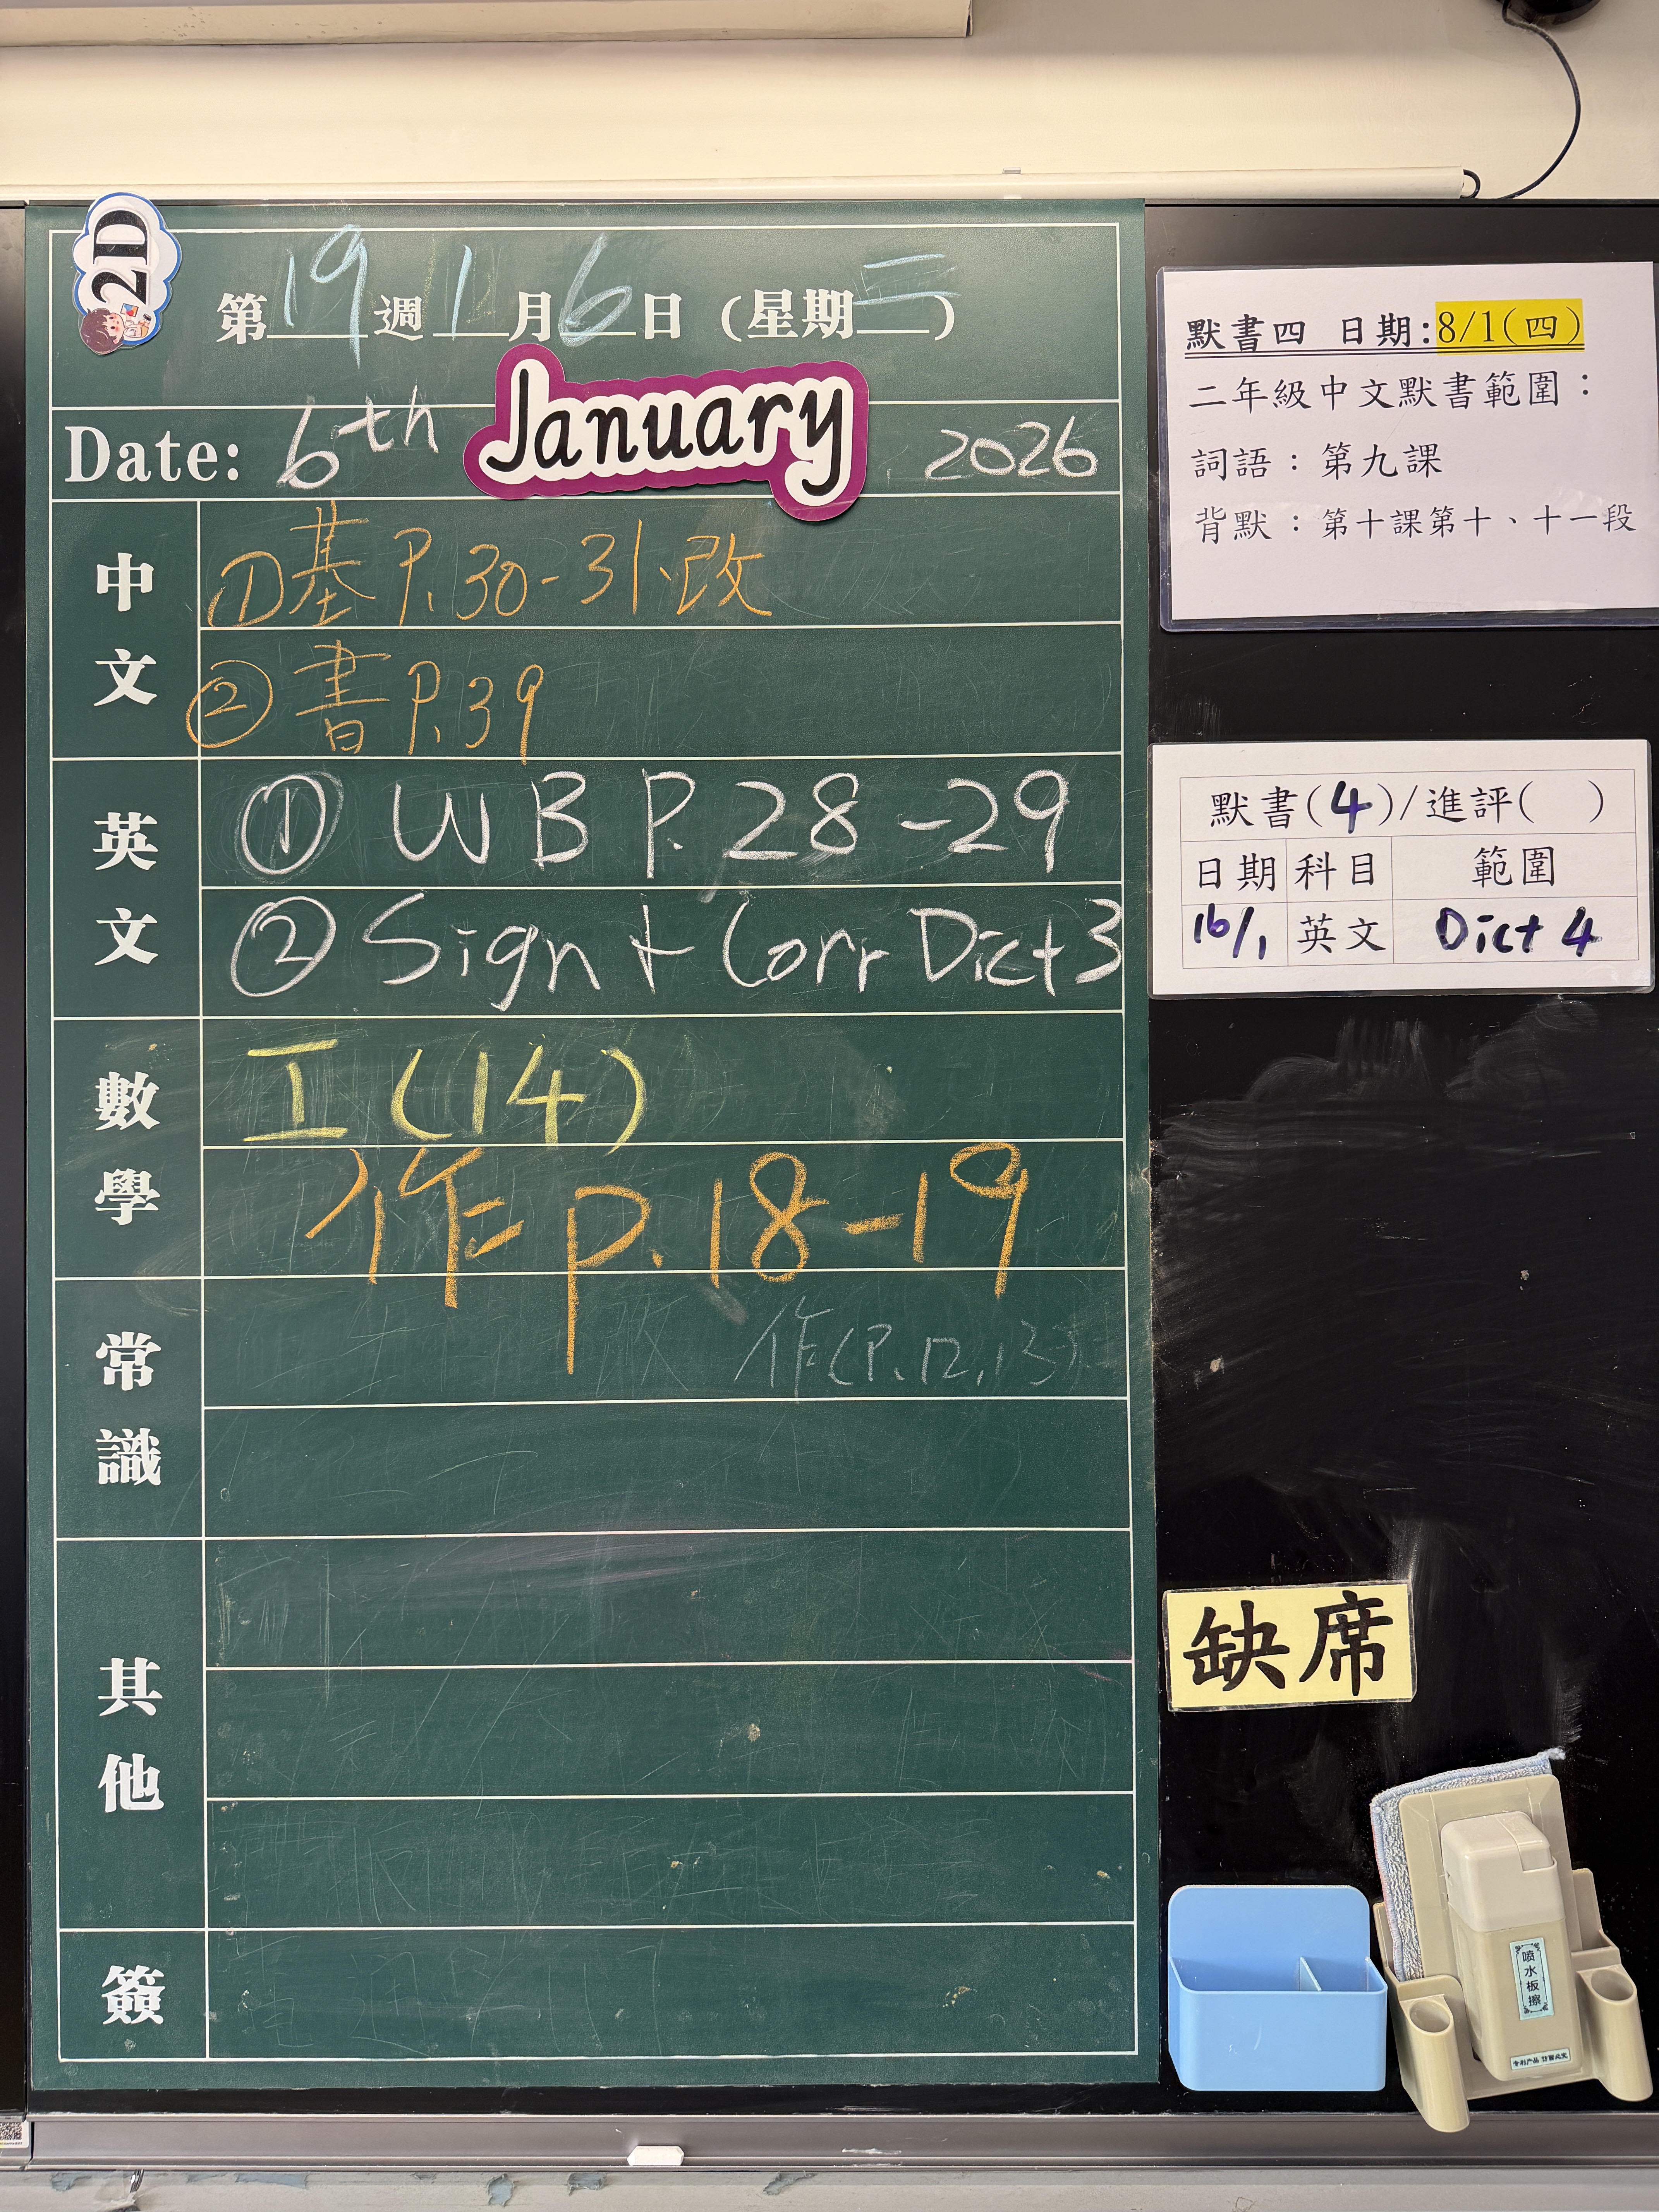 2D
第19週1月6日 (星期二)
Date: 6th January 2026
中文
①基 P.30-31、改
②書 P.39
英文
① WB P.28-29
② Sign + Corr Dict 3
數學
工(14)
作 p.18-19
常識
作(P.12,13)
其他
簽
默書四 日期:8/1(四)
二年級中文默書範圍：
詞語：第九課
背默：第十課第十、十一段
默書(4)/進評( )
日期 科目 範圍
16/1 英文 Dict 4
缺席
喷水板擦